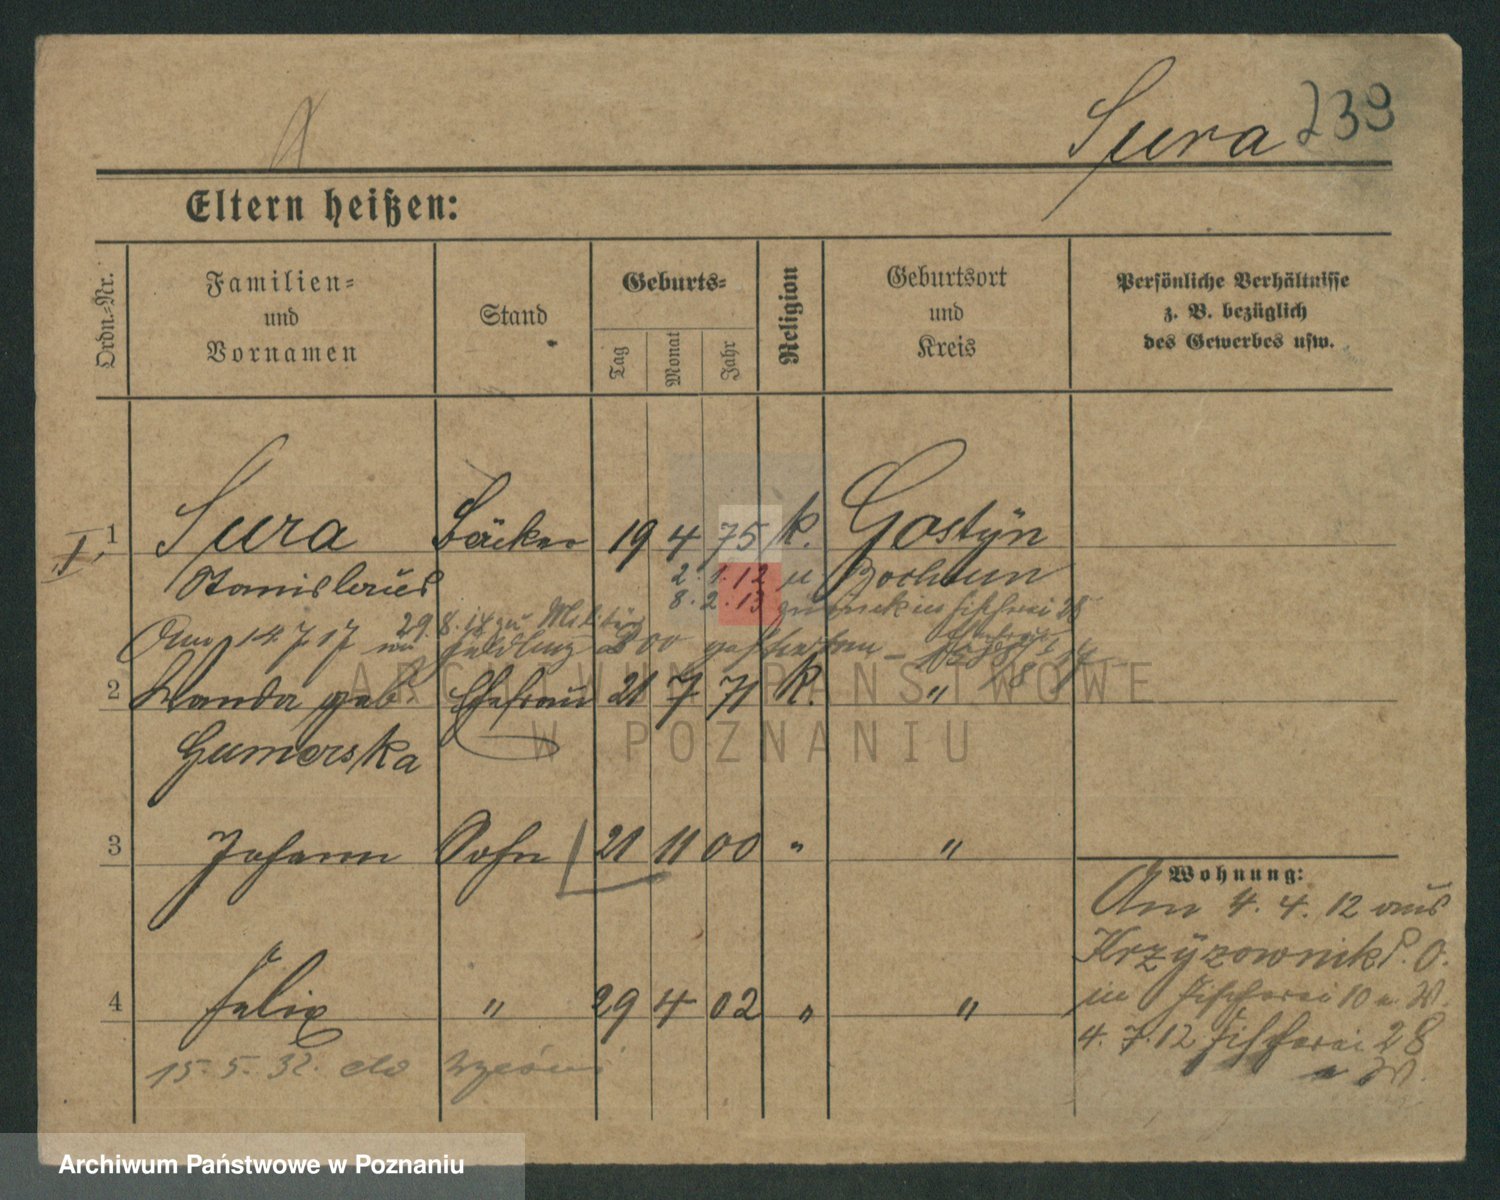 Sura 239
Eltern heißen:
Ordn.-Nr.
Familien-
und
Vornamen
Stand
Geburts-
Tag
Monat
Jahr
Religion
Geburtsort
und
Kreis
Persönliche Verhältnisse
z. B. bezüglich
des Gewerbes usw.
I. 1 Sura Bäcker 19 4 75 k. Gostÿn
Stanislaus 2. 1. 12 u Bochum
8. 2. 13 zurück Fischerei 28
29. 8. 14 zu Militär
Am 14 7 17
2 Wanda geb. Ehefrau 21 7 71 k. "
Gumerska
3 Johann Sohn 21 11 00 " "
4 Felix " 29 4 02 " "
15. 5. 32. do
Wohnung:
Am 4. 4. 12 aus
Krzÿzownik P. O.
in Fischerei 10 a. W.
4. 7. 12 Fischerei 28
a W.
ARCHIWUM PAŃSTWOWE
W POZNANIU
Archiwum Państwowe w Poznaniu